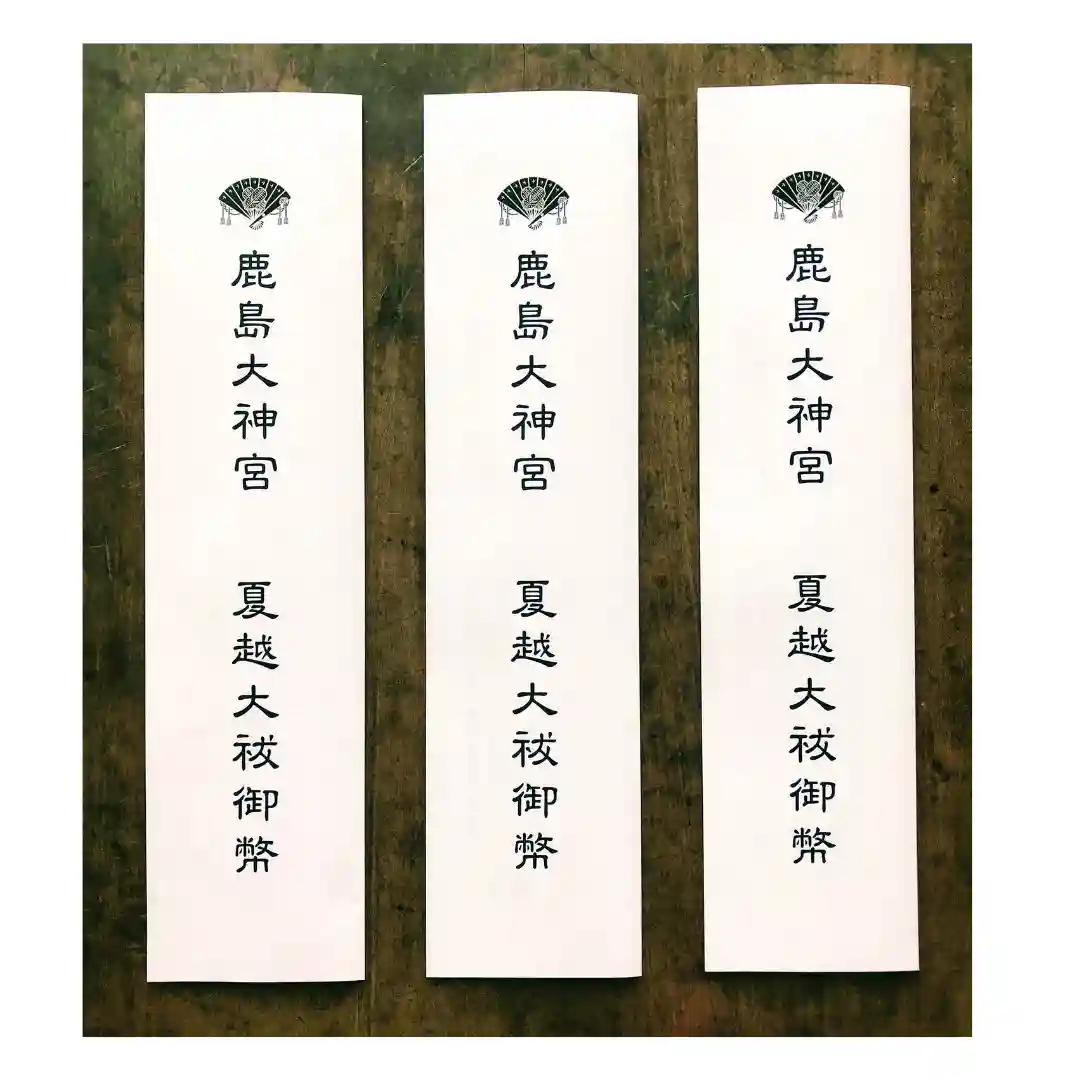 鹿島大神宮
夏越大祓御幣
鹿島大神宮
夏越大祓御幣
鹿島大神宮
夏越大祓御幣